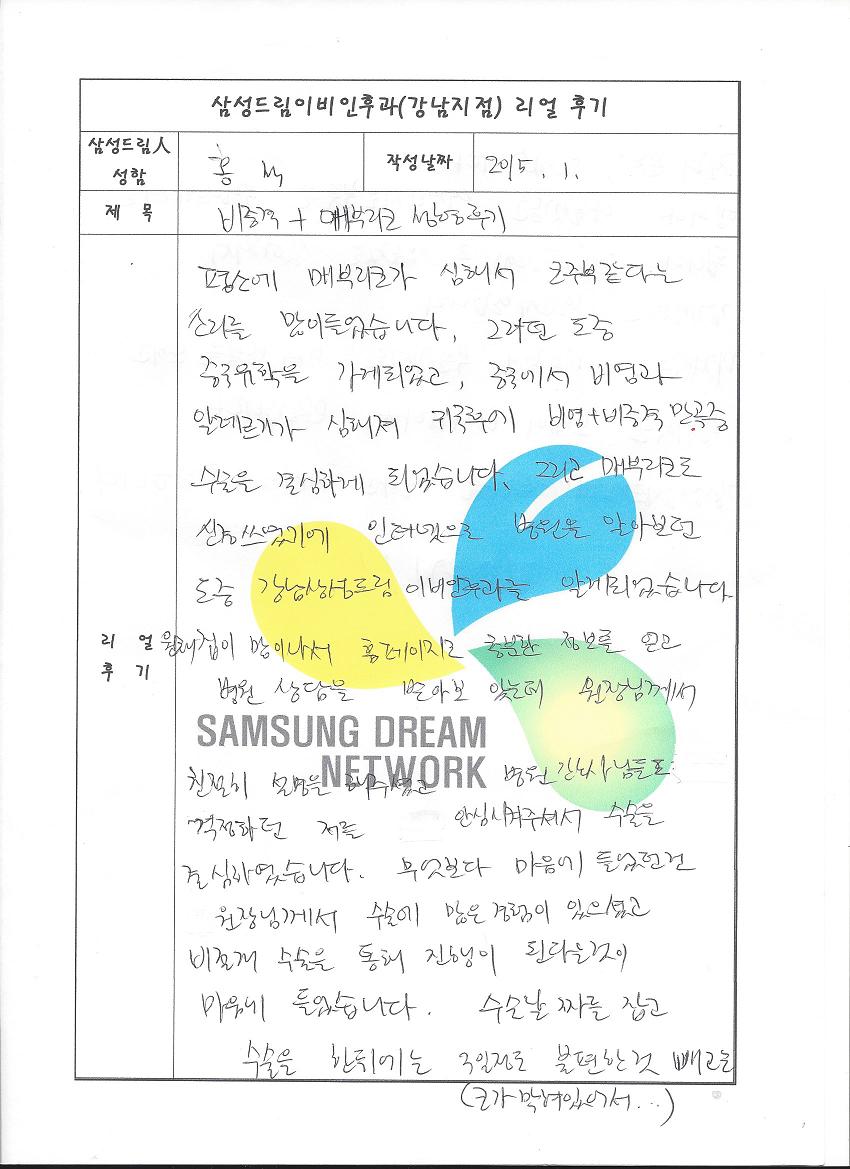 삼성드림이비인후과(강남지점) 리얼 후기
삼성드림人 성함
홍
작성날짜
2015. 1.
제 목
비중격 + 매부리코 성형후기
리 얼 후 기
평소에 매부리코가 심해서 코주부같다는
소리를 많이들었습니다, 그러던 도중
중국유학을 가게되었고, 중국에서 비염과
알레르기가 심해져 귀국후에 비염+비중격 만곡증
수술을 결심하게 되었습니다, 그리고 매부리코도
신경쓰였기에 인터넷으로 병원을 알아보던
도중 강남삼성드림 이비인후과를 알게되었습니다
원래 겁이 많이나서 홈페이지로 충분한 정보를 얻고
병원 상담을 받아보았는데 원장님께서
SAMSUNG DREAM
NETWORK
친절히 설명을 해주셨고 병원 간호사님들도
걱정하던 저를 안심시켜주셔서 수술을
결심하였습니다. 무엇보다 마음에 들었던건
원장님께서 수술에 많은 경험이 있으셨고
비절개 수술을 통해 진행이 된다는것이
마음에 들었습니다. 수술날짜를 잡고
수술을 한뒤에는 3일정도 불편한것 빼고는
(코가 막혀있어서...)